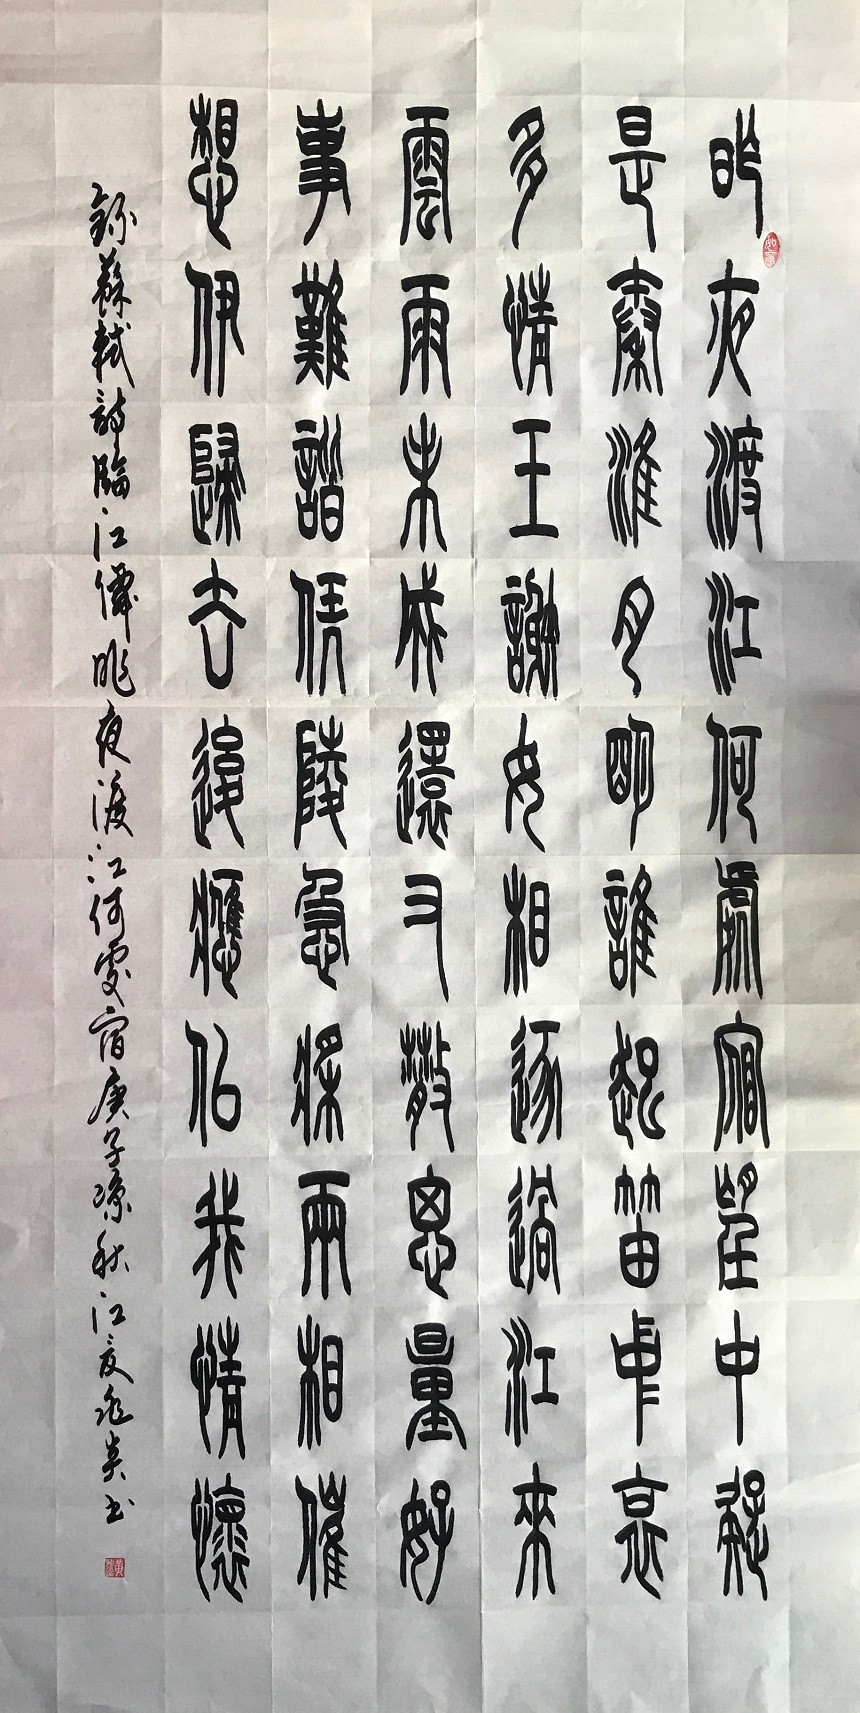 昨夜渡江何處宿望中疑
是秦淮月明誰起笛中哀
多情王謝女相逐過江來
雲雨未成還又散思量好
事難諧凭陵急槳兩相催
想伊歸去後應似我情懷
錄蘇軾詩臨江僊昨夜渡江何處宿庚子涼秋江夏書
如意